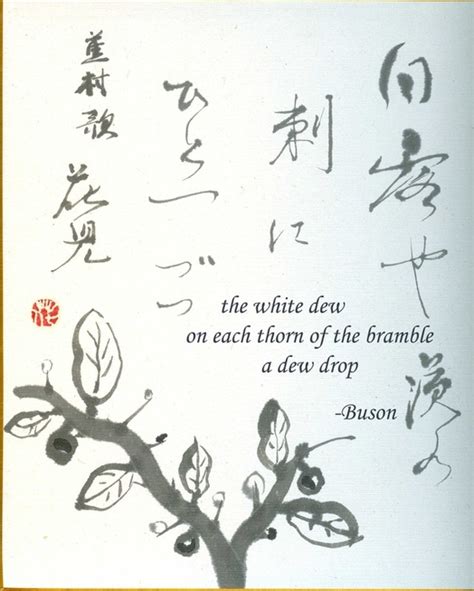 白露や茨の
刺に
ひとつづつ
蕪村歌
花児
the white dew
on each thorn of the bramble
a dew drop
-Buson